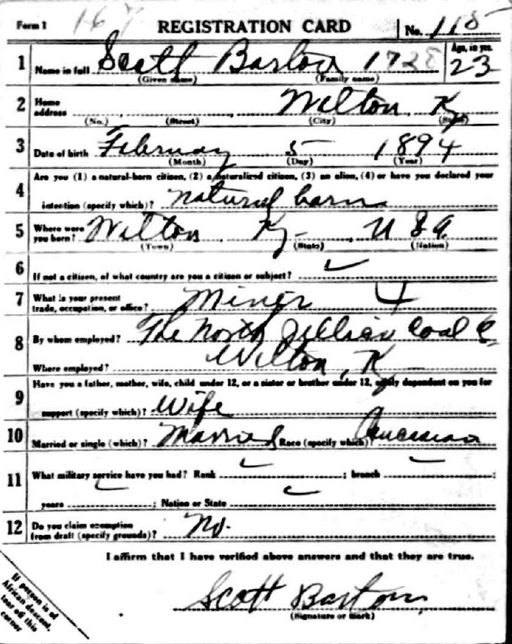 Form 1 167 REGISTRATION CARD No. 115
1 Name in full Scott Barton 1728 Age, in yrs. 23
(Given name) (Family name)
2 Home address Wilton Ky
(No.) (Street) (City) (State)
3 Date of birth February 5 1894
(Month) (Day) (Year)
4 Are you (1) a natural-born citizen, (2) a naturalized citizen, (3) an alien, (4) or have you declared your
intention (specify which)? natural born
5 Where were you born? Wilton Ky U S A.
(Town) (State) (Nation)
6 If not a citizen, of what country are you a citizen or subject?
7 What is your present trade, occupation, or office? Miner 4
8 By whom employed? The North Jellico Coal C
Where employed? Wilton, Ky
9 Have you a father, mother, wife, child under 12, or a sister or brother under 12, solely dependent on you for
support (specify which)? Wife
10 Married or single (which)? Married Race (specify which)? Caucasian
11 What military service have you had? Rank ; branch ;
years ; Nation or State
12 Do you claim exemption from draft (specify grounds)? No.
I affirm that I have verified above answers and that they are true.
Scott Barton
(Signature or mark)
If person is of
African descent,
tear off this
corner